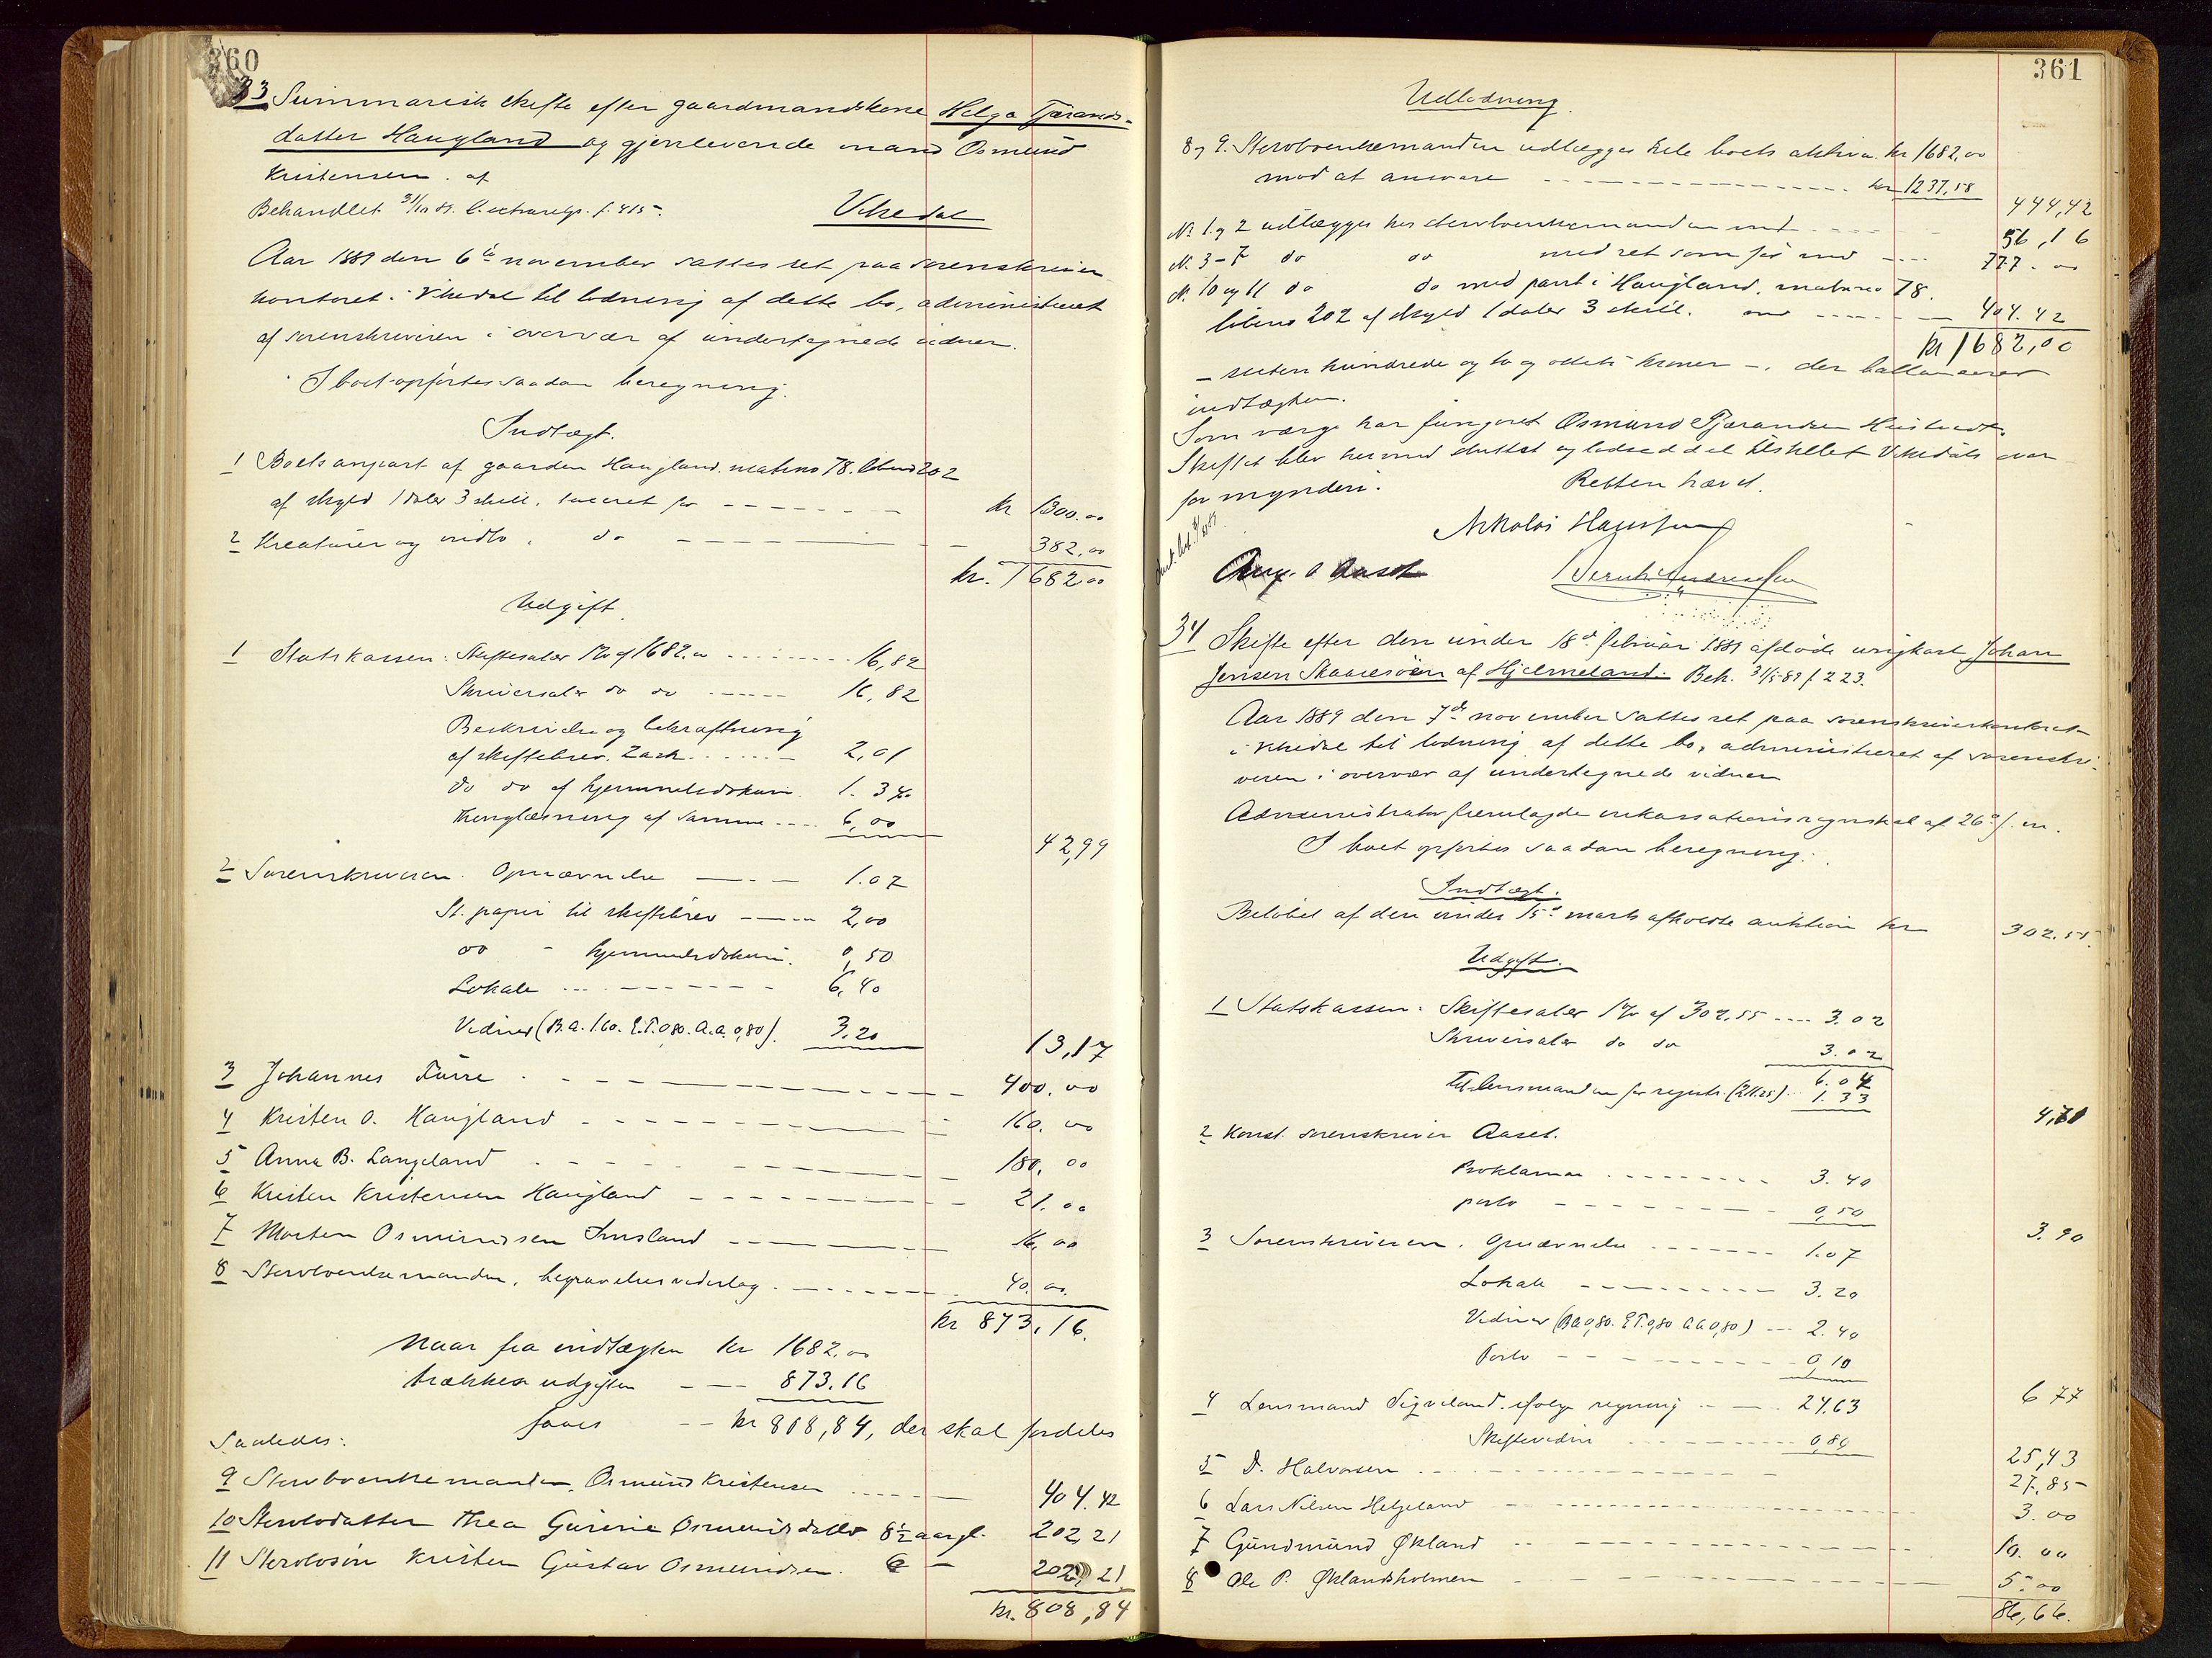 360
33 Summarisk skifte efter gaardmandskone Helga Tjærands-
datter Haugland og gjenlevende mand Osmund
Kristensen. af
Behandlet 31/10 89. l. extraretspr. f. 415. Vikedal
Aar 1889 den 6te november sattes ret paa sorenskriver
kontoret i Vikedal til lodning af dette bo, administreret
af sorenskriveren i overvær af undertegnede vidner.
I boet opførtes saadan beregning.
Indtægt.
1 Boets anpart af gaarden Haugland. matrno 78. løbeno 202
af skyld 1 daler 3 skill. taxeret for kr 1300.00
2 Kreaturer og indbo, do 382.00
kr. 1682.00
Udgift.
1 Statskassen: Skiftesaler 1% af 1682.00 16,82
Skriversaler do do 16,82
Beskrivelse og bekræftning
af skiftebrev. 2 ark. 2,01
do do af hjemmelsdokum. 1.34
Thinglæsning af samme 6,00
42,99
2 Sorenskriveren. Opnævnelse 1.07
St. papir til skiftebrev 2,00
do - hjemmelsdokum. 0,50
Lokale 6,40
Vidner (B.A. 1.60. E.T. 0,80. A.A. 0,80). 3.20
13,17
3 Johannes Furre 400.00
4 Kristen O. Haugland 160.00
5 Anna B. Langeland 180.00
6 Kristen Kristensen Haugland 21.00
7 Morten Osmundsen Imsland 16,00
8 Stervboenkemanden, begravelsesvederlag 40.00.
kr 873,16.
Naar fra indtægten kr 1682.00
trækkes udgiften 873.16
faaes kr 808,84, der skal fordeles
saaledes:
9 Stervboenkemanden, Osmund Kristensen 404.42
10 Stervbodatter Thea Gurine Osmundsdatter 8½ aar gl. 202,21
11 Stervbosøn Kristen Gustav Osmundsen. 6 - 202,21
kr. 808,84
361
Udlodning.
8 og 9. Stervboenkemanden udlægges hele boets aktiva. kr 1682,00
mod at ansvare kr 1237,58
444,42
No 1 og 2 udlægges hos stervboenkemanden med 56,16
No. 3-7 do do med ret som før med 777.00
No. 10 og 11 do do med pant i Haugland, matrno 78.
løbeno 202 af skyld 1 daler 3 skill. med 404.42
kr 1682,00
- sexten hundrede og to og otteti kroner -, der ballancerer
indtægten.
Som værge har fungeret Osmund Tjærandsen
Skiftet blev hermed sluttet og lodseddel tilstillet Vikedals over
formynderi. Retten hævet.
Nikolai
Aug. A Aaset Bernt Andreassen
34 Skifte efter den under 18de februar 1889 afdøde ungkarl Johan
Jensen Skaaresøen af Hjelmeland. Beh. 31/5-89 f. 223.
Aar 1889 den 7de november sattes ret paa sorenskriverkontoret
i Vikedal til lodning af dette bo, administreret af sorenskri-
veren i overvær af undertegnede vidner
Administrator fremlagde inkassationsregnskab af 26de f. m.
I boet opførtes saadan beregning:
Indtægt.
Beløbet af den under 15de marts afholdte auktion kr 302.55.
Udgift.
1 Statskassen: Skiftesaler 1% af 302,55 3.02
Skriversaler do do 3.02
6.04
Til lensmanden for registr. 1.33
4,71
2 Konst. sorenskriver Aaset.
Proklama 3.40
porto 0,50
3.90
3 Sorenskriveren. Opnævnelse 1.07
Lokale 3.20
Vidner (B.A 0,80. E.T. 0,80 A.A 0,80) 2.40
Porto 0,10
6 77
4 Lensmand Sigveland. ifølge regning 24.63
Skiftevidne 0,80
25,43
5 D. Halvorsen 27,85
6 Lars Nilsen Helgeland 3.00
7 Gundmund Økland 10.00
8 Ole P. Øklandsholmen 5.00
86,66.